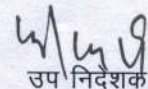 उप निदेशक